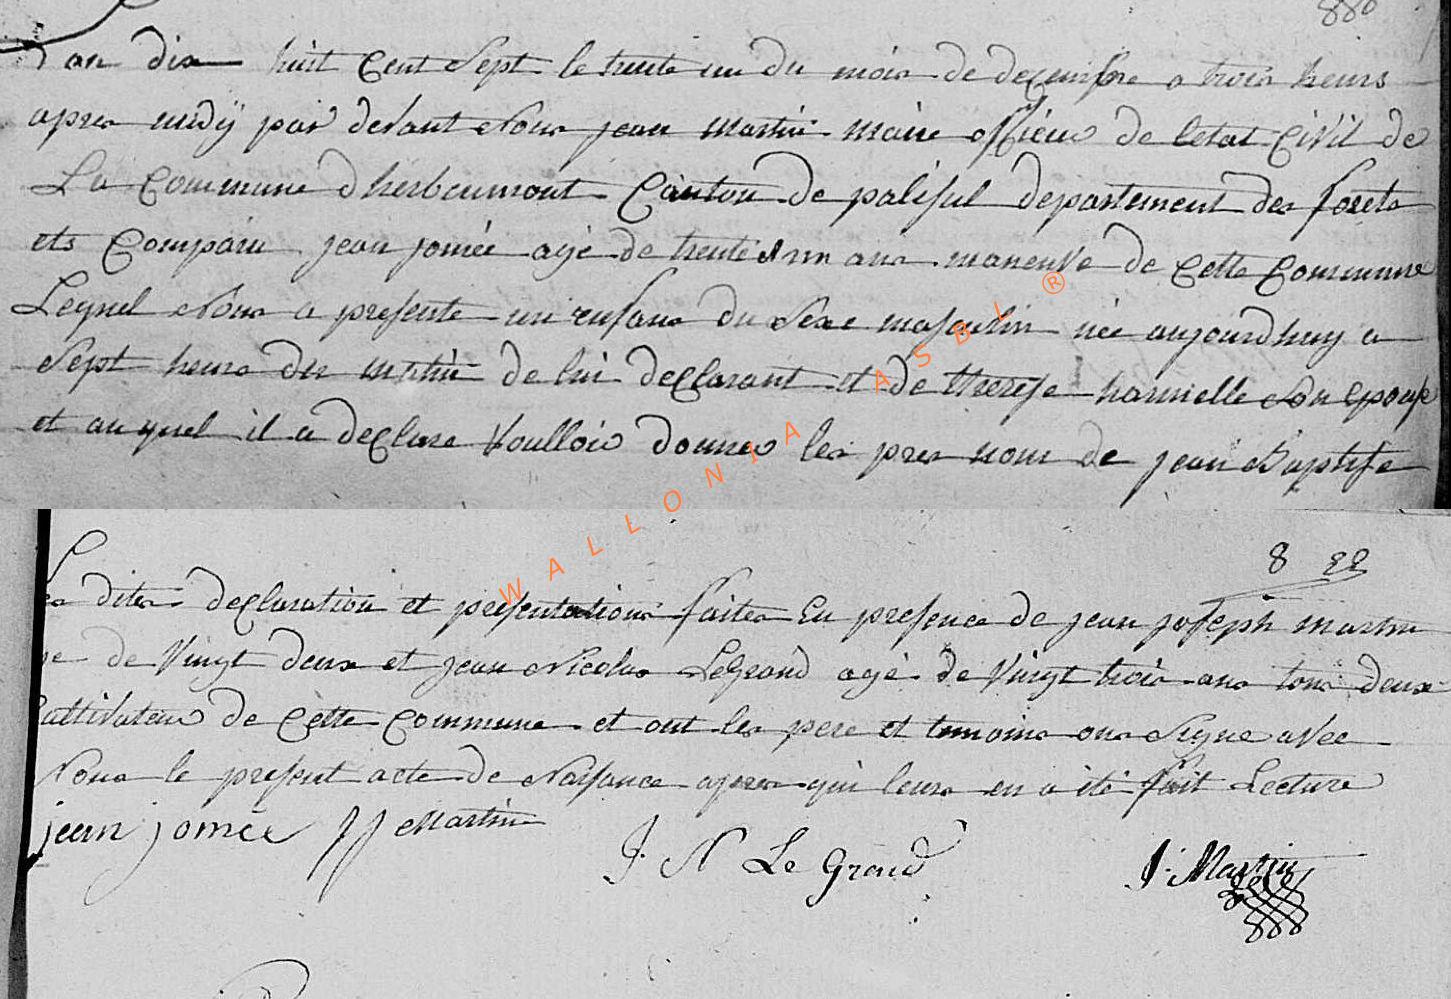 880
L an dix huit Cent Sept le trente un du mois de decembre a trois heurs
apres midÿ par devant Nous jean Martin maire officier de letat Civil de
La Commune dherbeumont Canton de paliseul departement des forets
ets Comparu jean jomée agé de trente un ans maneuvé de Cette Commune
Lequel Nous a presente un enfans du Sexe masculin née aujourdhuy a
Sept heurs du matin de lui declarant et de therese hannelle Son Epouse
et au quel il a declare Voulloir donner les pres nom de jean Baptiste
8 82
Les dites declaration et presentations faites En presence de jean joseph martin
de Vingt deux et jean Nicolas LeGrand agé de Vingt trois ans tous deux
Cultivateur de Cette Commune et ont les pere et temoins ons Signe avec
Nous le present acte de Naisance apres qui leurs en a été fait Lecture
jean jomée JJ Martin
J. N Le Grand
J. Martin
WALLONIA ASBL ®